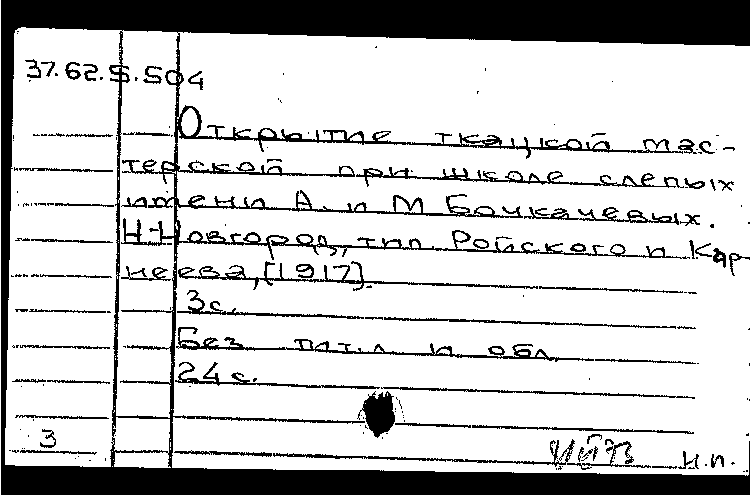 37.62.5.504
Открытие ткацкой мас-
терской при школе слепых
имени А. и М Бочкачевых.
Н-Новгород, тип. Ройского и Кар
неева, [1917].
3с.
Без тит.л и обл.
24 с.
3
н.п.